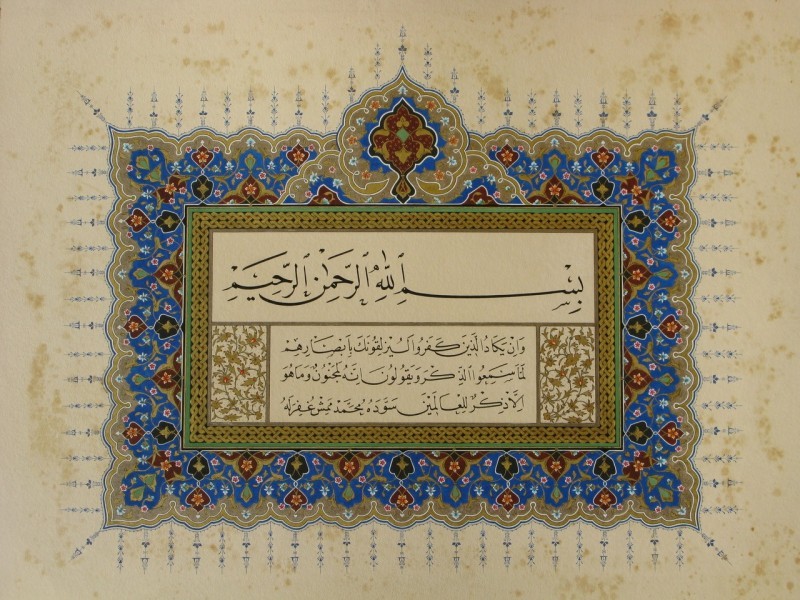 بِسْمِ ٱللَّهِ ٱلرَّحْمَٰنِ ٱلرَّحِيمِ
وَإِنْ يَكَادُ الَّذِينَ كَفَرُوا لَيُزْلِقُونَكَ بِأَبْصَارِهِمْ
لَمَّا سَمِعُوا الذِّكْرَ وَيَقُولُونَ إِنَّهُ لَمَجْنُونٌ وَمَا هُوَ
إِلَّا ذِكْرٌ لِلْعَالَمِينَ سَوَّدَهُ مُحَمَّد غُفِرَ لَهُ